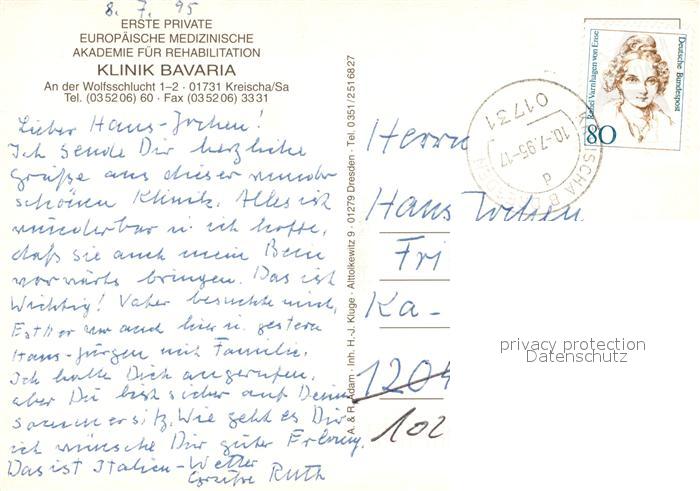 8. 7. 95
ERSTE PRIVATE
EUROPÄISCHE MEDIZINISCHE
AKADEMIE FÜR REHABILITATION
KLINIK BAVARIA
An der Wolfsschlucht 1–2 · 01731 Kreischa/Sa
Tel. (03 52 06) 60 · Fax (03 52 06) 33 31
Lieber Hans-Jochen!
Ich sende Dir herzliche
Grüße aus dieser wunder
schönen Klinik. Alles ist
wunderbar u. ich hoffe,
daß sie auch mein Bein
vorwärts bringen. Das ist
Wichtig! Vater besuchte mich,
Esther war auch hier u. gestern
Hans-Jürgen mit Familie.
Ich hatte Dich angerufen,
aber Du bist sicher auf Deinem
Sommersitz. Wie geht es Dir
ich wünsche Dir gute
Das ist Italien-Wetter
Grüße Ruth
A. & R. Adam · Inh. H.-J. Kluge · Alttolkewitz 9 · 01279 Dresden · Tel. 03 51/2 51 68 27
Deutsche Bundespost
Rahel Varnhagen von Ense
80
01731
10.-7.95-17
d
KREISCHA B DRESDEN
Herrn
Hans Jochen
Fri
Ka-
1204
102
privacy protection
Datenschutz